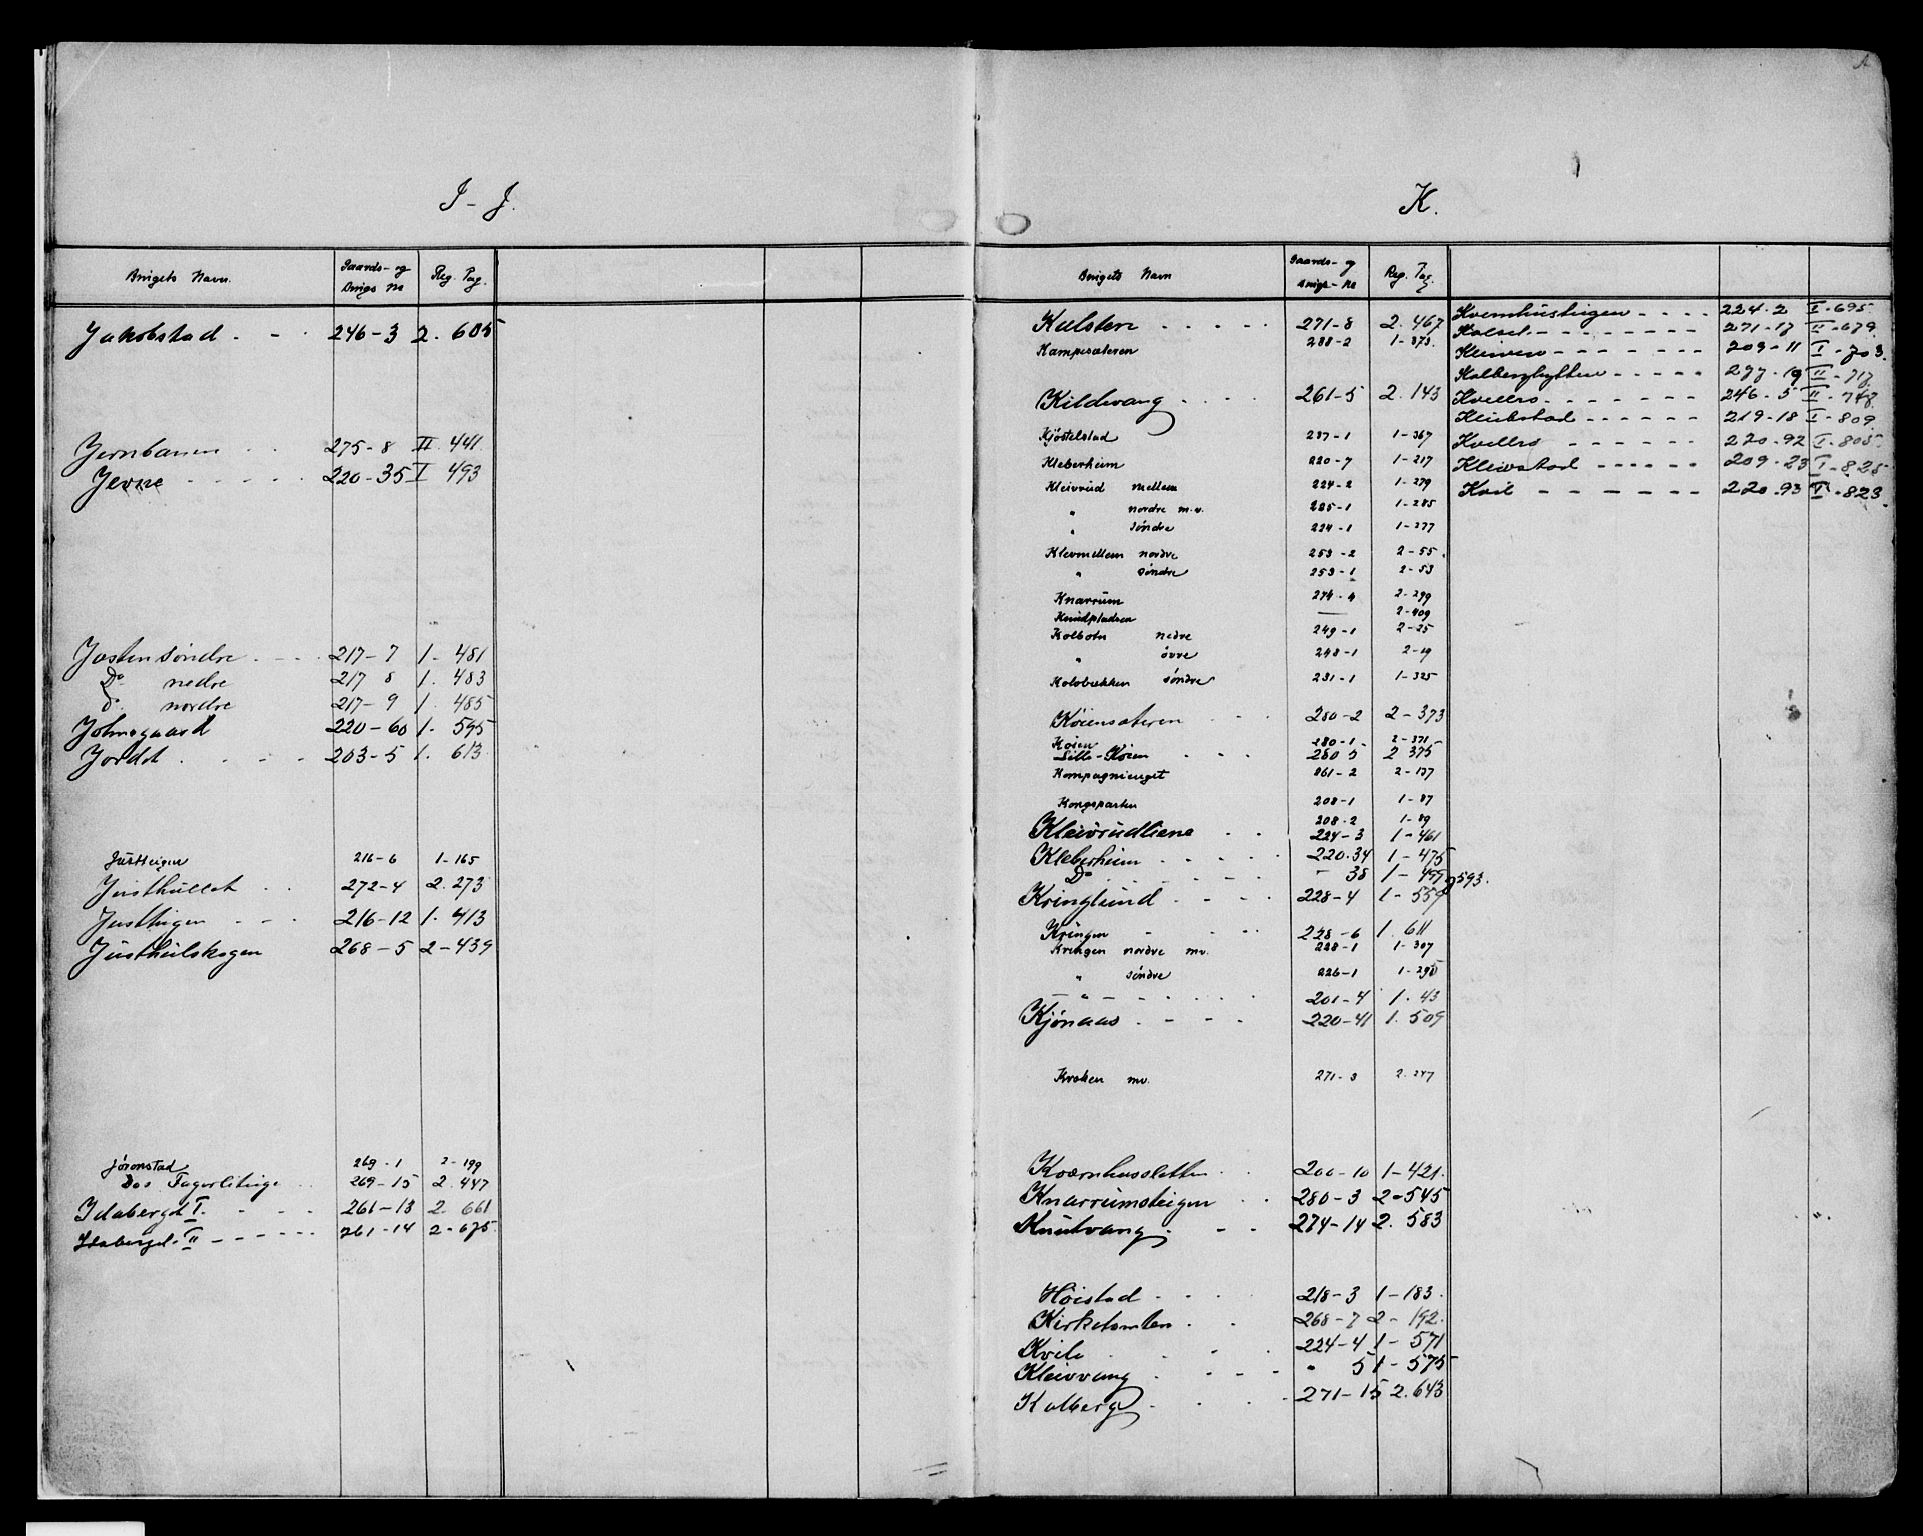 I - J.
Brugets Navn. Gaards- og Brugs No Reg. Pag.
Jakobstad . - . 246-3 2. 605
Jernbanen . . 275-8 II. 441
Jevne - - - - - 220-35 I 493
Josten søndre . - - . 217-7 1- 481
Do nedre 217 8 1. 483
d. nordre 217-9 1. 485
Johnsgaard 220-60 1- 595
Jordet . . . . . 203-5 1. 613
Justteigen 216-6 1-165
Justhullet . . 272-4 2. 273
Justteigen - - - 216-12 1. 413
Justhulskogen 268-5 2-439
Jøronstad 269-1 2-199
Do s Fagerliteige . . 269-15 2. 447
Idaberget I. - - - - 261-13 2. 661
Idaberget II - - - - - - 261-14 2-675.
K.
Brugets Navn Gaards- og Brugs-No Reg. Pag.
Kulsten . . . . . 271-8 2. 467
Kampesæteren 288-2 1-373.
Kildevang . . . . 261-5 2. 143
Kjøstelstad 237-1 1-367
Kleberheim 220-7 1-217
Kleivrud mellem 224-2 1-279
" nordre m.v. 225-1 1-285
" søndre 224-1 1-277
Klevmellem nordre 253-2 2-55.
" søndre 253-1 2-53
Knarrum 274-4 2-299
Knudpladsen — 2-409
Kolbotn nedre 249-1 2-25
" øvre 248-1 2-19
Kolobækken søndre 231-1 1-325
Køiensæteren - - - 280-2 2-373
Køien 280-1 2-371
Lille-Køien - - - 280 3 2 375
Kompagnienget 261-2 2-137
Kongsparten 208-1 1-87
208-2 1-89
Kleivrudliene . . 224-3 1-461
Kleberheim . - - - - 220.34 1-475
Do . - - - - - - 38 1-499 593.
Kringlund . - - - - 228-4 1-559
Kringen - - - - 228-6 1. 611
Kringen nordre mv. 228-1 1-307
" søndre 226-1 1-295
- " - - - - - - - 201-4 1. 43
Kjønaas . - - - - 220-41 1. 509
Kroken mv. 271-3 2.247
Kværnhussletten . . 200-10 1-421.
Knarrumsteigen . . 280-3 2-545
Knutvang . - - 274-14 2. 583
Høistad . - - - 218-3 1-183.
Kirketomten . . 268-7 2-192.
Kvile . - - - 224-4 1- 571
Kleivvang . - - - - " 5 1- 575
Kolberg . . . - 271-15 2. 643
Kvernhusteigen - - - - 224-2 I-695.
Kolset - - - - - - - - 271-17 II-679
Kleiven - - - - - - - 209-11 I-703.
Kolberghytten - - - - - 277-19 II-717.
Kvillro - - - - - - - 246-5 II-747.
Kleivstad - - - - - - 219-18 I-809.
Kvillro - - - - - - 220-92 I-805
Kleivstad - - - - - - 209-23 I-825
Kvil - - - - - - 220.93 I-823.